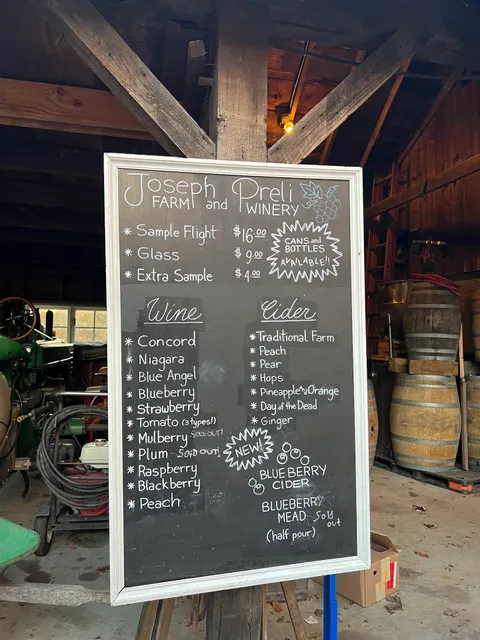 Joseph Preli
FARM and WINERY
* Sample Flight $16.00
* Glass $9.00
* Extra Sample $4.00
CANS and
BOTTLES
AVAILABLE!!
Wine
* Concord
* Niagara
* Blue Angel
* Blueberry
* Strawberry
* Tomato (3 types!)
* Mulberry - SOLD OUT!
* Plum - Sold out!
* Raspberry
* Blackberry
* Peach
Cider
* Traditional Farm
* Peach
* Pear
* Hops
* Pineapple Orange
* Day of the Dead
* Ginger
NEW!
BLUEBERRY
CIDER
BLUEBERRY
MEAD Sold
out
(half pour)